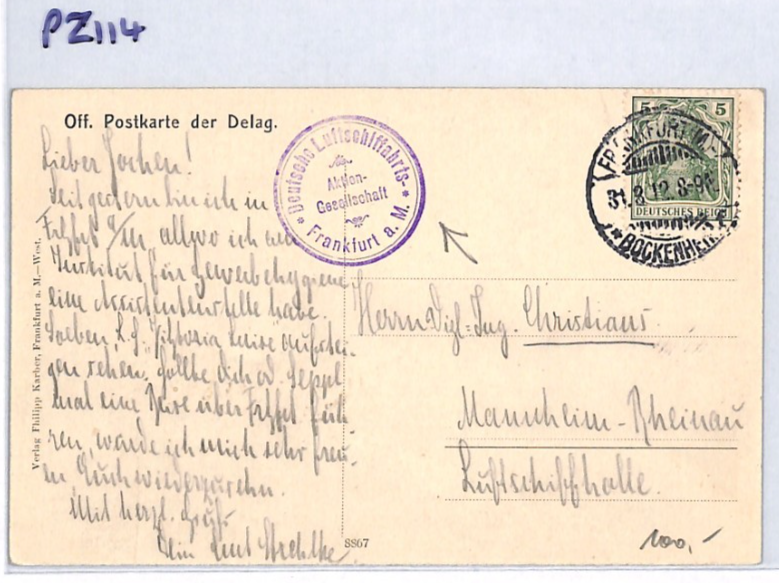 PZ114
Off. Postkarte der Delag.
Deutsche Luftschiffahrts-
Aktien-
Gesellschaft
Frankfurt a. M.
5 5
DEUTSCHES REICH
FRANKFURT (M.)-
31.8.12. 8-9
* BOCKENHEIM
Lieber Jochen!
Seit gestern bin ich in
a/M, allwo ich am
Institut für Gewerbehygiene
eine Assistentenstelle habe.
Soeben L.S. "Viktoria Luise" aufstei-
gen sehen. Sollte Dich od. Seppl
mal eine Reise über füh-
ren, würde ich mich sehr freu-
en, Euch wiederzusehn.
Mit herzl. Gruß
Dein
Herrn Dipl=Ing. Christians
Mannheim-Rheinau
Luftschiffhalle.
Verlag Philipp Karber, Frankfurt a. M.—West.
8867
100,-